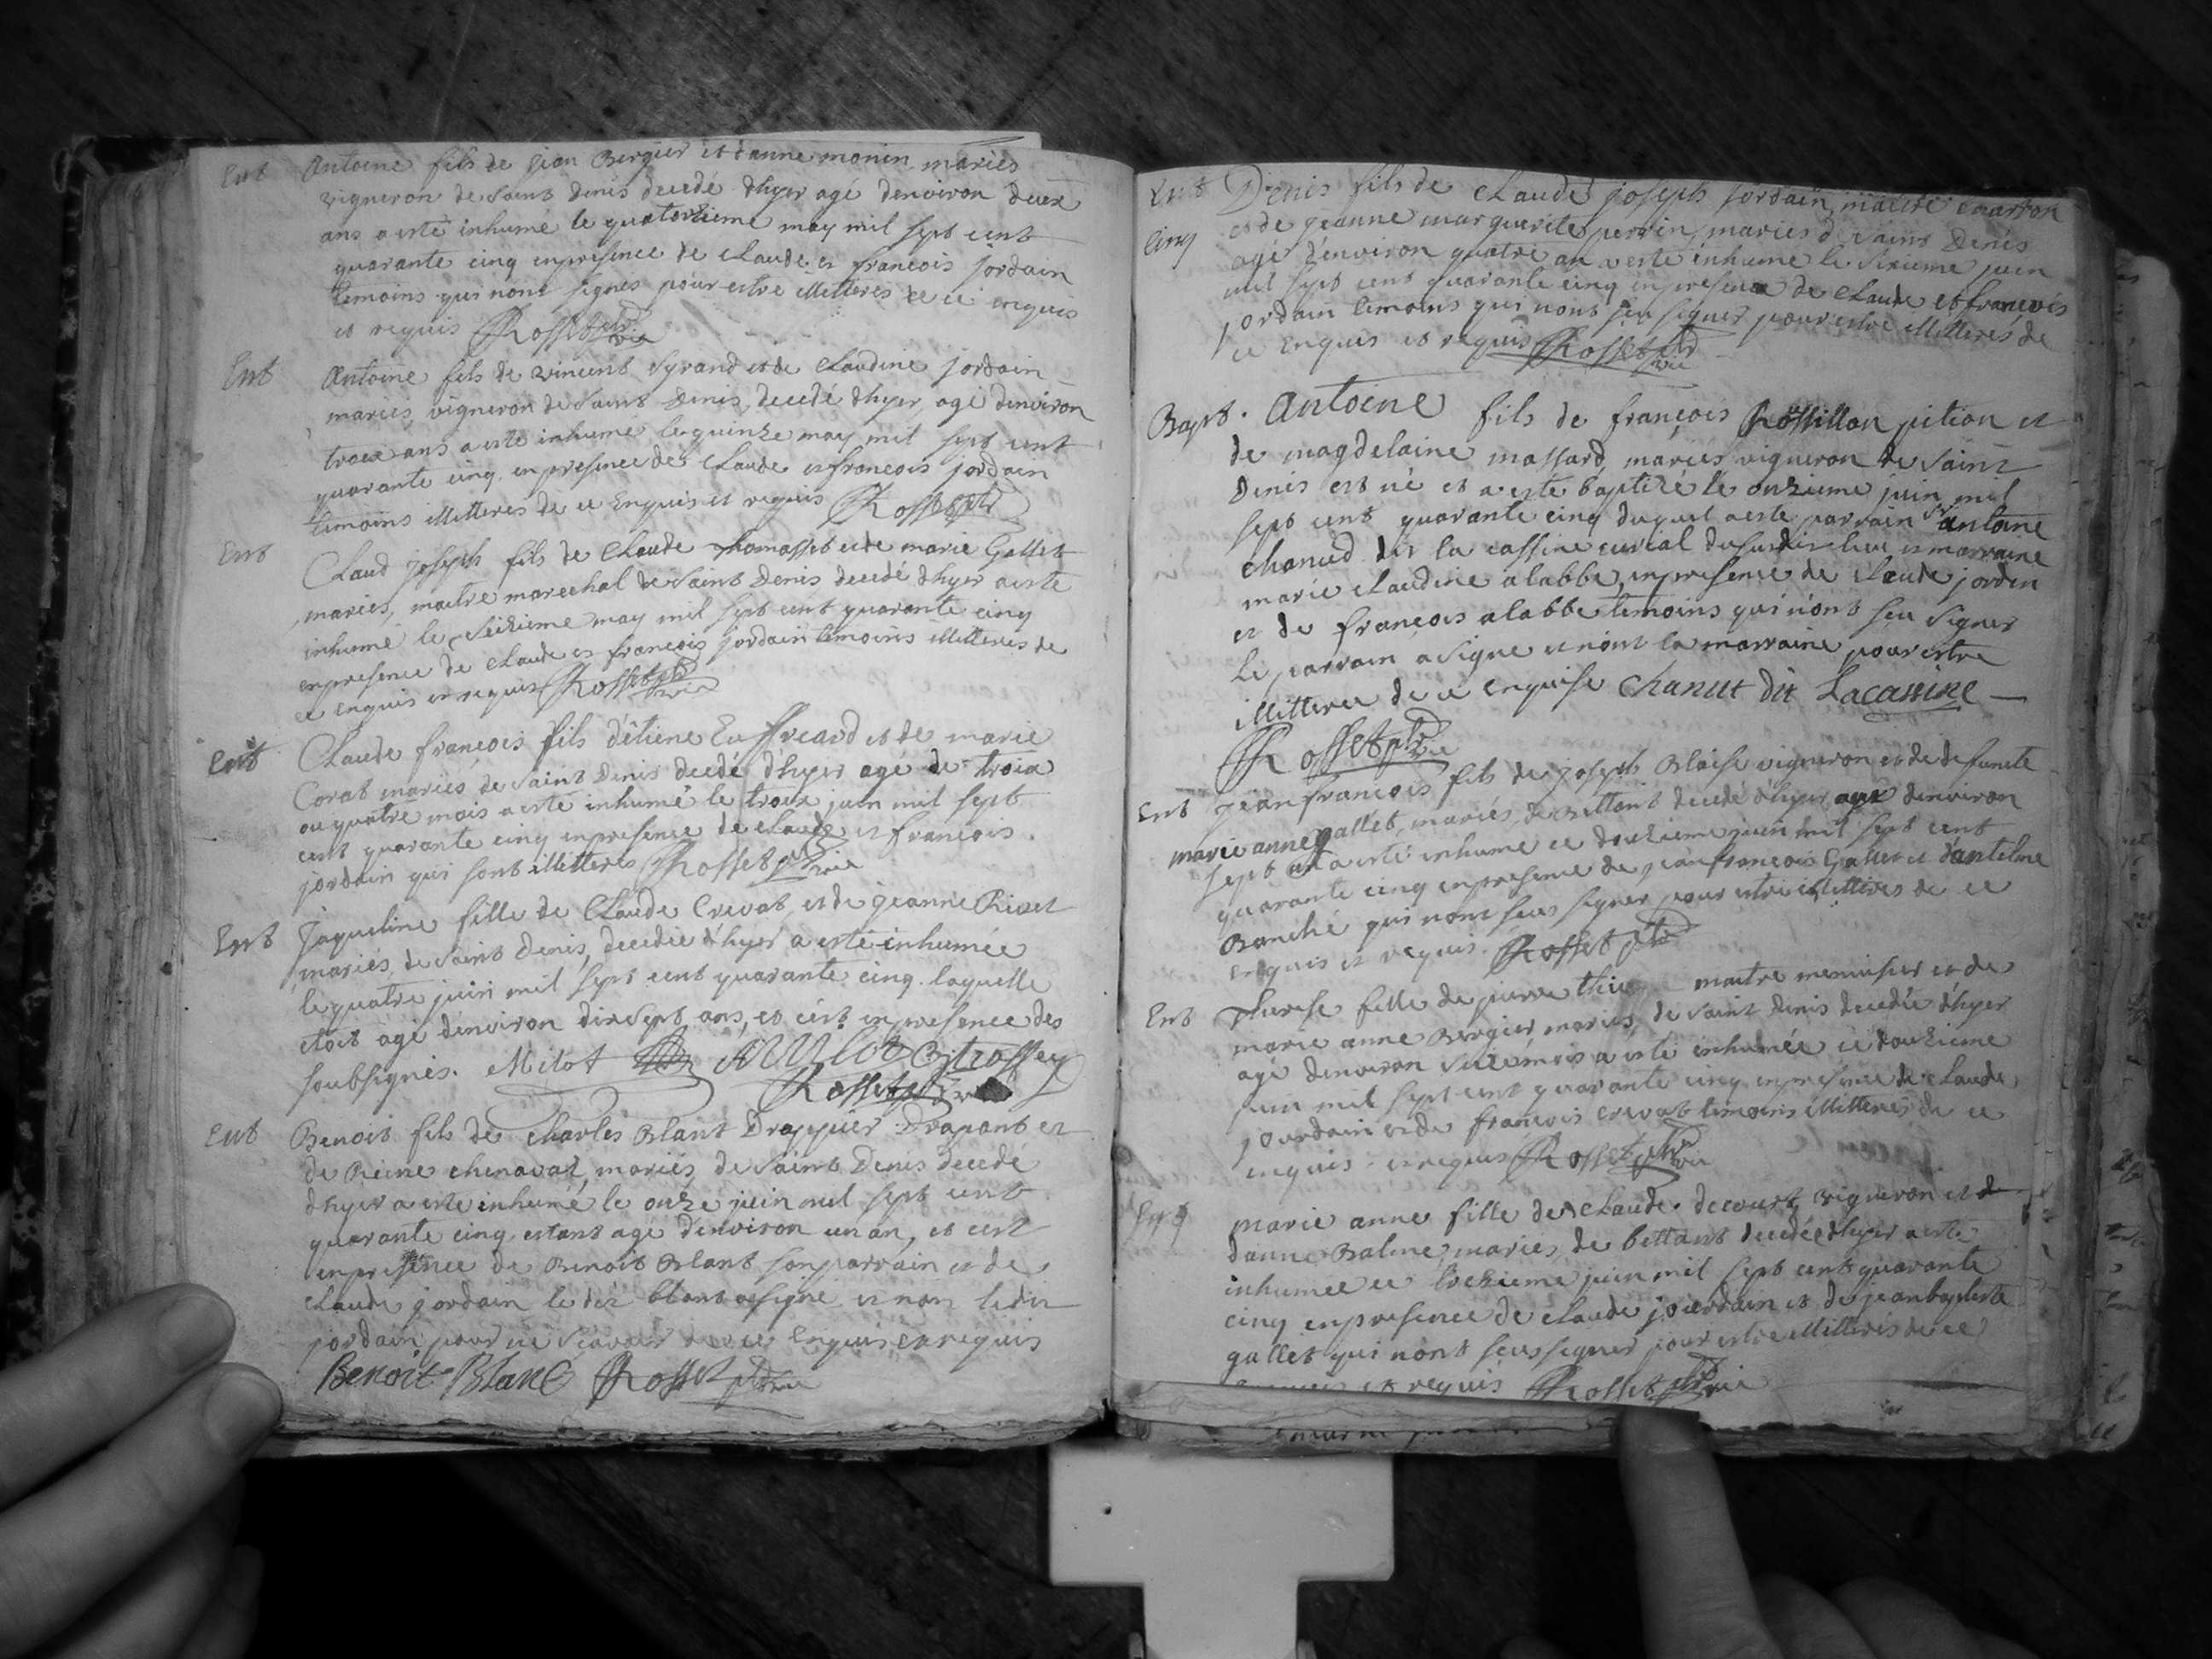 Ent Antoine fils de jean Bergier et danne monin mariés
vigneron de Saint Denis decedé dhyer agé denviron deux
ans a esté inhumé le quatorzieme may mil sept cent
quarante cinq en presence de claude et francois jordain
temoins qui nont signés pour estre illitteres de ce enquis
et requis Rosset ptre vic
Ent Antoine fils de vincent Syrand et de claudine jordain
mariés, vigneron de Saint Denis, decedé dhyer, agé denviron
troix ans a esté inhumé le quinze may mil sept cent
quarante cinq en presence de claude et francois jordain
temoins illitteres de ce enquis et requis Rosset ptre
Ent Claud joseph fils de claude thomasset et de marie Gallet
mariés, maitre marechal de Saint Denis decedé dhyer a esté
inhumé le Seizieme may mil sept cent quarante cinq
en presence de claude et francois jordain temoins illitteres de
ce enquis et requis Rosset ptre vic
Ent Claude francois fils d'étiene Euffreard et de marie
Corat mariés de Saint Denis decedé d'hyer agé de troix
ou quatre mois a esté inhumé le troix juin mil sept
cent quarante cinq en presence de claude et francois
jordain qui sont illitteres Rosset ptre vic
Ent Jaqueline fille de Claude Crevat et de jeanne Rivet
mariés, de Saint Denis, decedée d'hyer a esté inhumée
le quatre juin mil sept cent quarante cinq laquelle
etoit agé denviron dix sept ans, et c'est en presence des
soubsignés. Milot Milot
Rosset ptre vic
Ent Benoit fils de charles Blant Drappier Drapant et
de Reine chenavat, mariés, de Saint Denis decedé
dhyer a esté inhumé le onze juin mil sept cent
quarante cinq estant agé denviron un an, et cest
en presence de Benoit Blant son parrain et de
claude jordain le dit blant a signé et non ledit
jordain pour ne scavoir de ce enquis et requis
Benoit Blanc Rosset ptre vic
Ent Denis fils de claude joseph jordain, maitre charron
cinq et de jeanne marguerite perrin, mariés de Saint Denis
agé d'environ quatre an a esté inhumé le Sixieme juin
mil sept cent quarante cinq en presence de claude et francois
jordain temoins qui nont seu signer pour estre illitteres de
ce enquis et requis Rosset ptre vic
Bapt. Antoine fils de francois Rossillon pition et
de magdelaine massard, mariés vigneron de Saint
Denis est né et a este baptizé le onzieme juin mil
sept cent quarante cinq duquel a esté parrain Sr antoine
chanud dit la cassine curial dususdit lieu et marraine
marie claudine alabbe, en presence de claude jorden
et de francois alabbe temoins qui n'ont seu signer
le parrain a signé et nont la marraine pour estre
illitteree de ce enquise chanut dit Lacassine —
Rosset ptre vic
Ent jean francois fils de joseph Blaise vigneron et de defuncte
marie anne gallet, mariés, de bettant decedé d'hyer agé denviron
sept an a esté inhumé ce douzieme juin mil sept cent
quarante cinq en presence de jean francois Gallet et d'antelme
Banché qui nont seus signer pour estre illitteres de ce
enquis et requis. Rosset ptre
Ent Therese fille de pierre maitre menuisier et de
marie anne Bergier, mariés, de Saint Denis decedée d'hyer
agé denviron Six mois a esté inhumée ce douzieme
juin mil sept cent quarante cinq en presence de claude
jourdain et de francois crevat temoins illitteres de ce
enquis et requis Rosset ptre vic
Ent marie anne fille de claude decourt, vigneron et de
danne Balme, mariés, de bettant decedée dhyer a esté
inhumee ce treizieme juin mil sept cent quarante
cinq en presence de claude jourdain et de jean baptiste
gallet qui n'ont seus signer pour estre illitteres de ce
et requis Rosset ptre vic